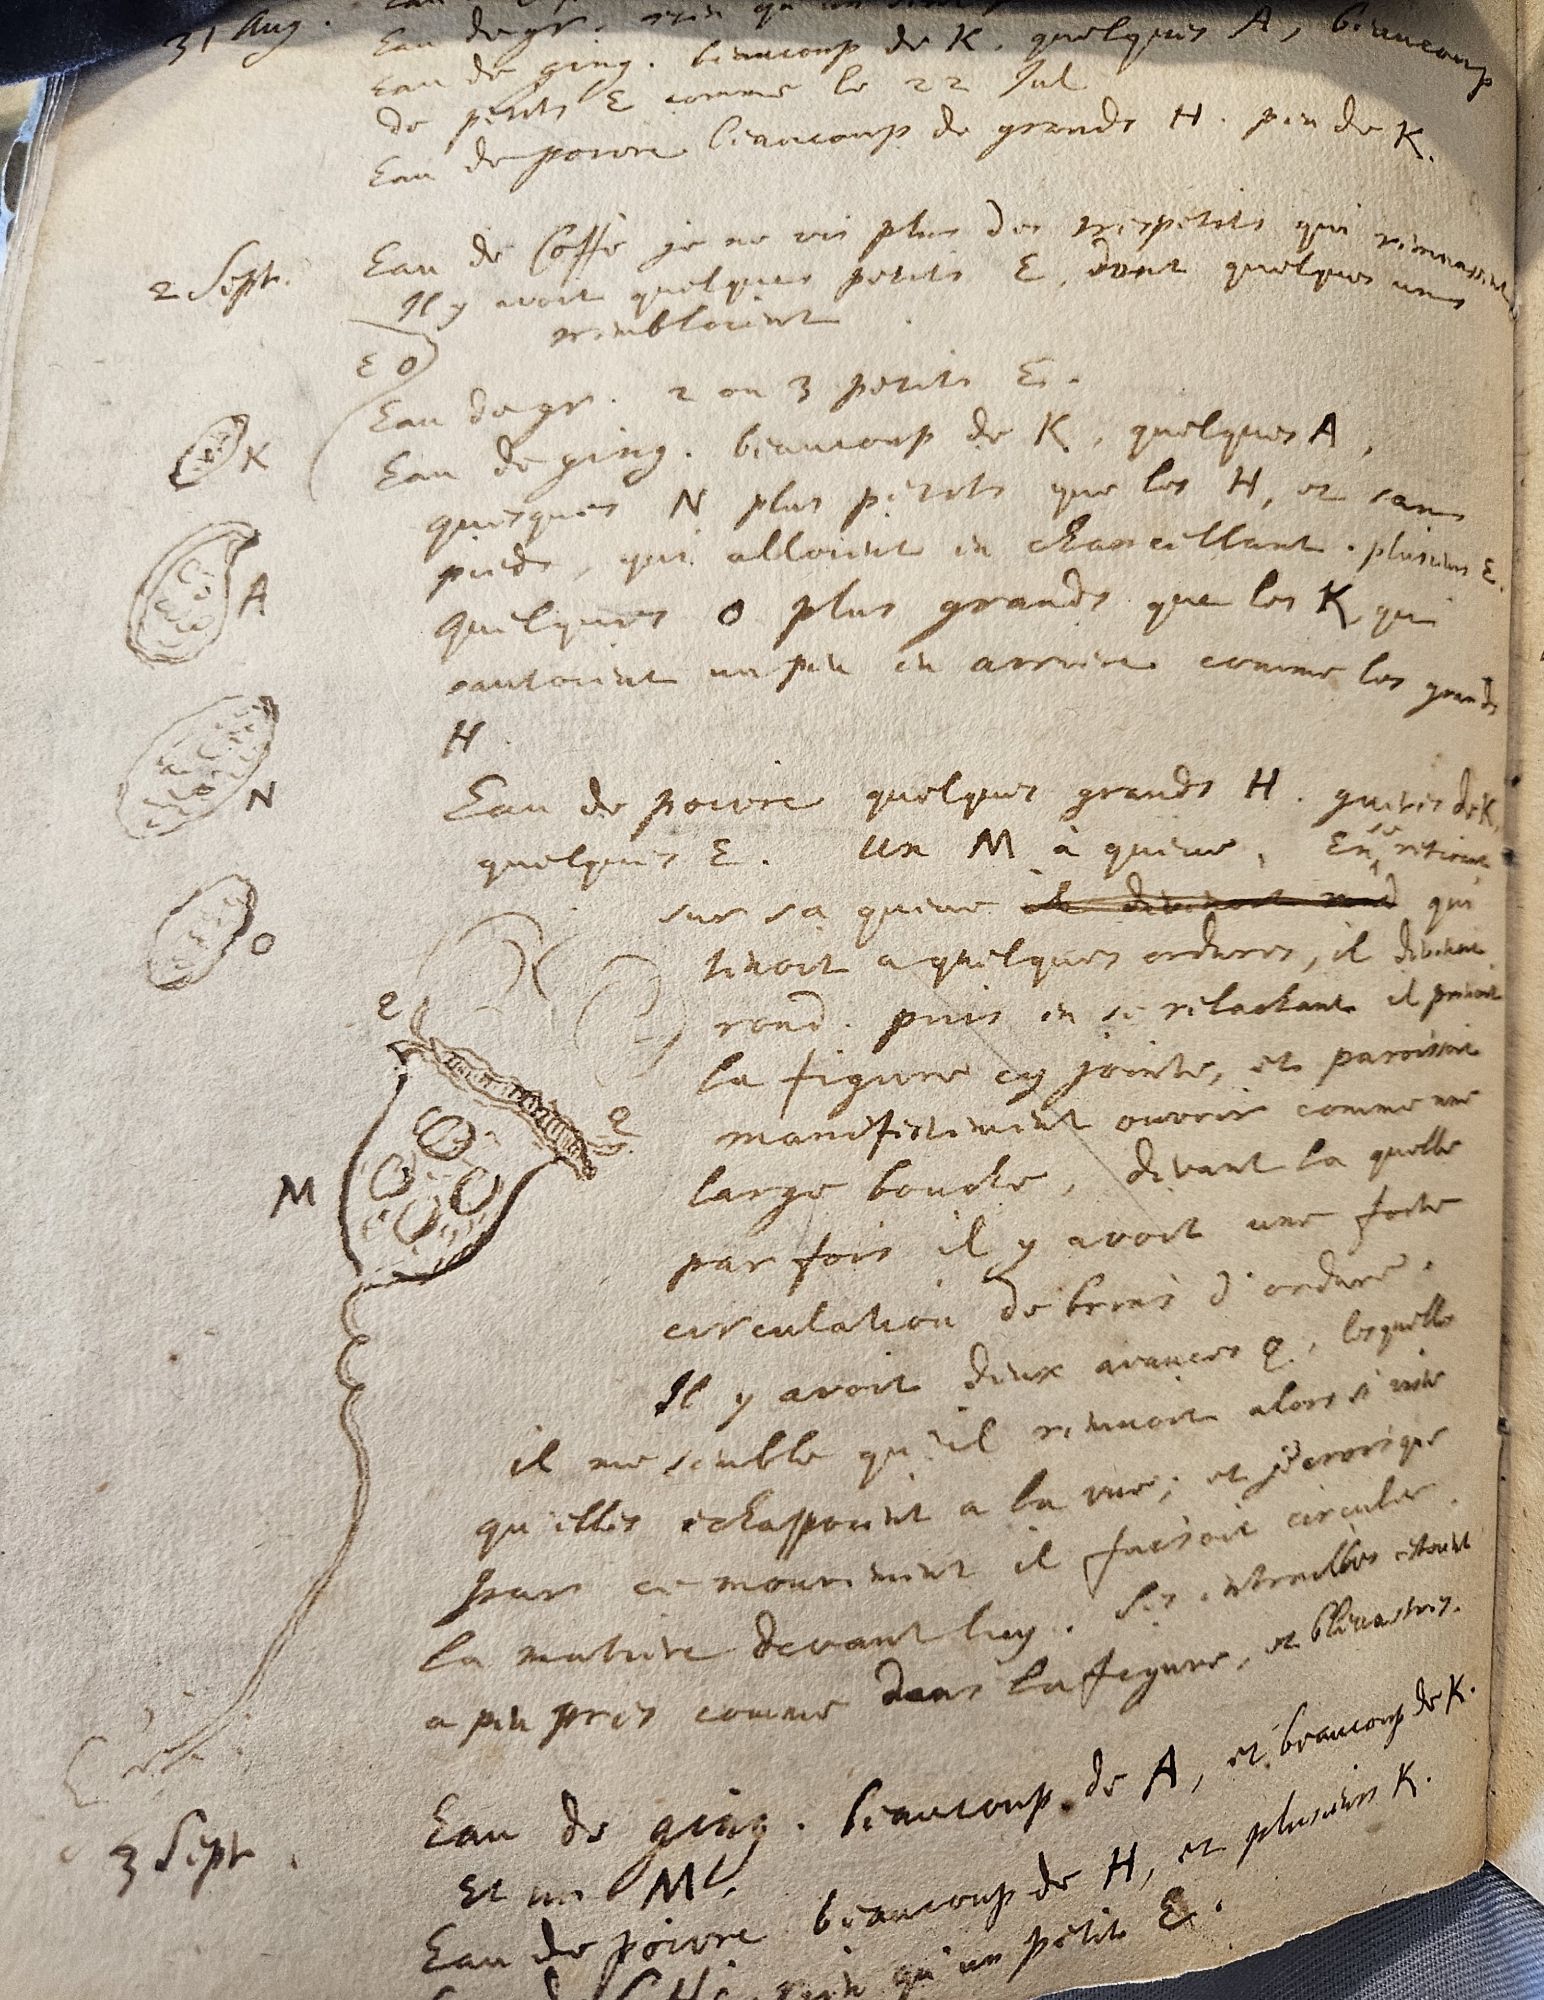 31 Aug.
Eau de gr. rien qu'un
Eau de ging. beaucoup de K, quelques A, beaucoup
de petits E comme le 22 Jul
Eau de poivre beaucoup de grands H. peu de K.
2 Sept.
Eau de Coffé je ne vis plus des trespetits qui
Il y avoit quelques petits E, dont quelques uns
trembloient
E O
Eau de gr. 2 ou 3 petits E.
Eau de ging. beaucoup de K, quelques A,
quesques N plus petits que les H, et sans
pieds, qui alloient en chancellant. plusieurs E.
quelques O plus grands que les K, qui
sautoient un peu en arriere comme les grands
H.
K
A
N
O
Eau de poivre quelques grands H. gueres de K,
quelques E. Un M à queue, En se retirant
sur sa queue il devenoit rond qui
tenoit a quelques ordures, il devenoit
rond. puis en se relachant il prenoit
la figure cy jointe, et paroissoit
manifestement ouvrir comme une
large bouche, devant la quelle
par fois il y avoit une forte
circulation de brins d'ordure.
Q
Q
M
Il y avoit deux avances Q, lesquelles
il me semble qu'il remuoit alors si viste
qu'elles echappoient a la vue; et je crois que
par ce mouvement il faisoit circuler
la matiere devant luy. Ses entrailles estoient
a peu pres comme dans la figure, et bleuastres.
3 Sept.
Eau de ging. beaucoup de A, et beaucoup de K.
Et un M.
Eau de poivre beaucoup de H, et plusieurs K.
rien qu'un petit E.